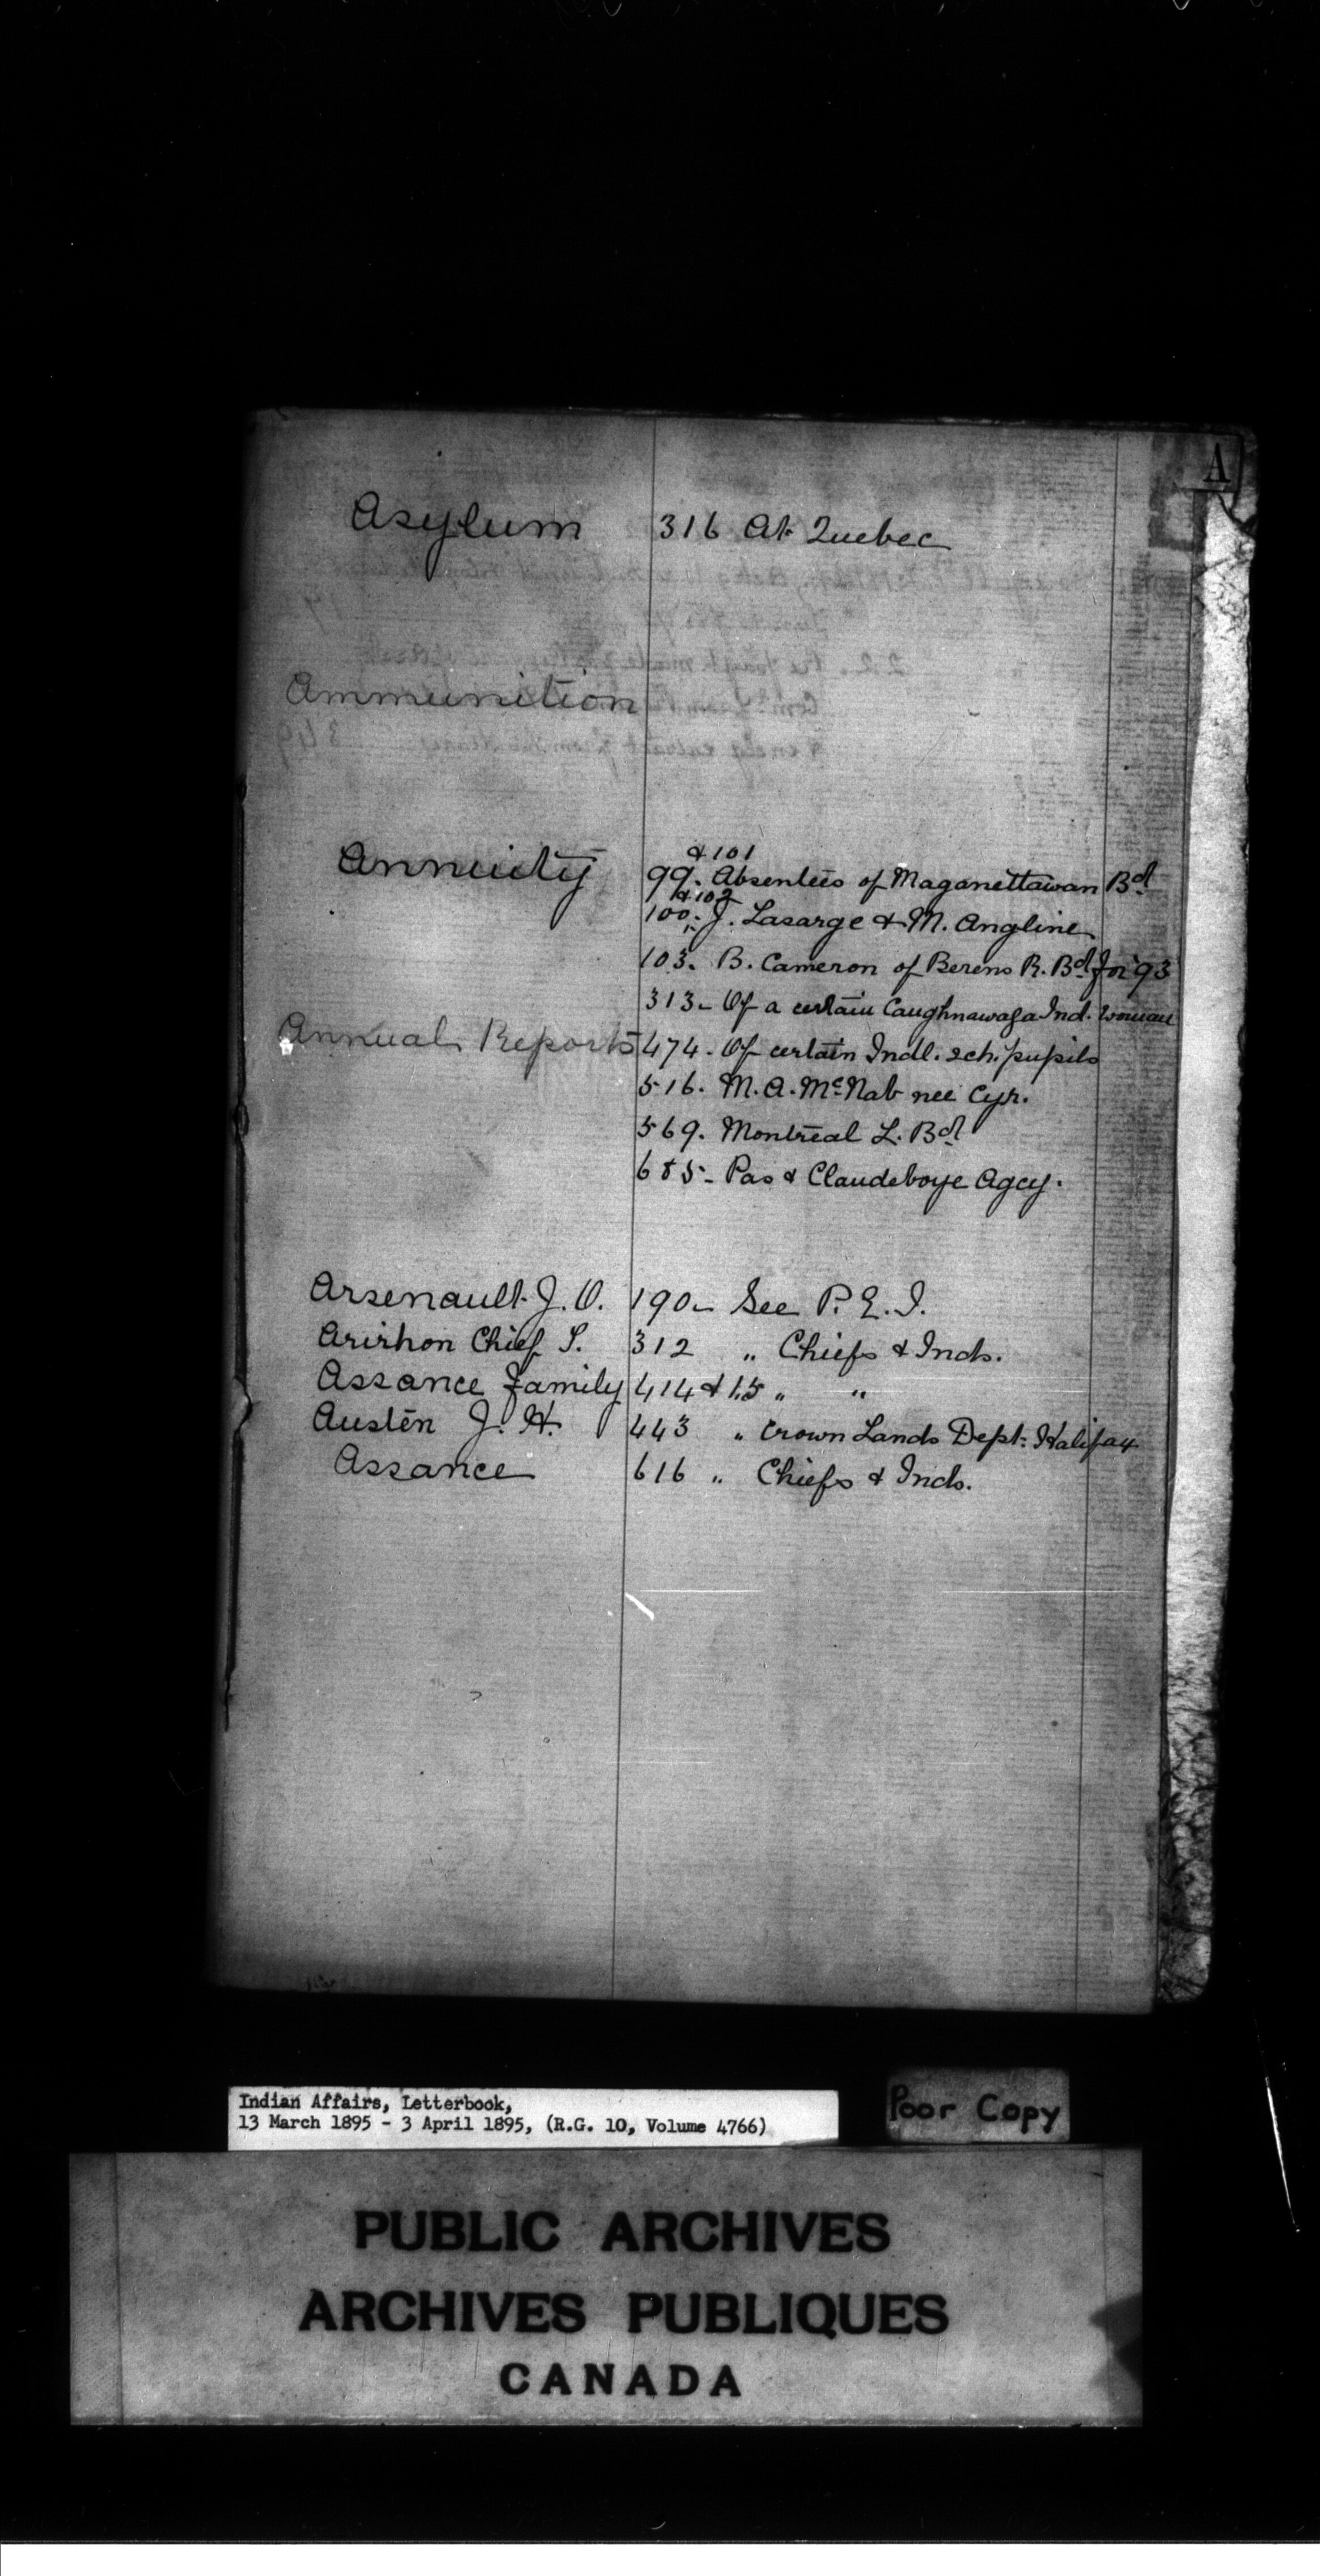 A
Asylum 316 At Quebec
Ammunition
& 101
Annuity 99. Absentees of Maganettawan Bd.
& 102
100. J. Lasarge & M. Angline
103. B. Cameron of Berens R. Bd. for 93
313- Of a certain Caughnawaga Ind. woman
Annual Reports 474. Of certain Indl. sch. pupils
516. M. A. McNab nee Cyr.
569. Montreal L. Bd.
685- Pas & Clandeboye Agcy.
Arsenault J. O. 190- See P. E. I.
Arirhon Chief S. 312 " Chiefs & Inds.
Assance Family 414 & 15 " "
Austen J. H. 443 " Crown Lands Dept. Halifax
Assance 616 " Chiefs & Inds.
Indian Affairs, Letterbook,
13 March 1895 - 3 April 1895, (R.G. 10, Volume 4766)
Poor Copy
PUBLIC ARCHIVES
ARCHIVES PUBLIQUES
CANADA